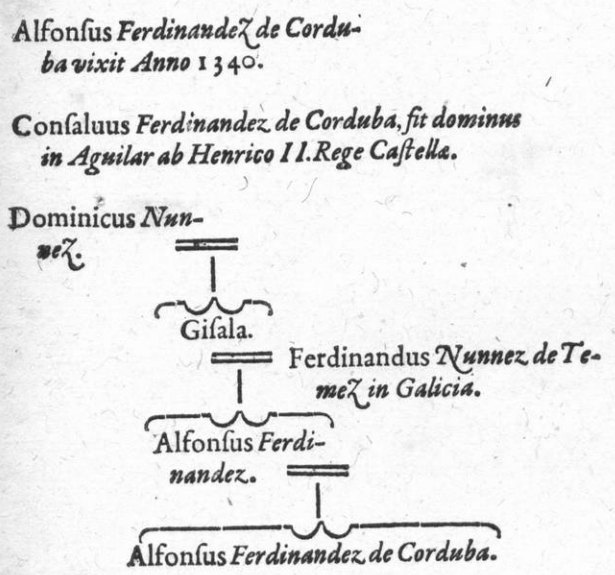 Alfonſus Ferdinandez de Cordu-
ba vixit Anno 1340.
Conſaluus Ferdinandez de Corduba, fit dominus
in Aguilar ab Henrico II. Rege Caſtellæ.
Dominicus Nun-
nez.
Giſala.
Ferdinandus Nunnez de Te-
mez in Galicia.
Alfonſus Ferdi-
nandez.
Alfonſus Ferdinandez de Corduba.